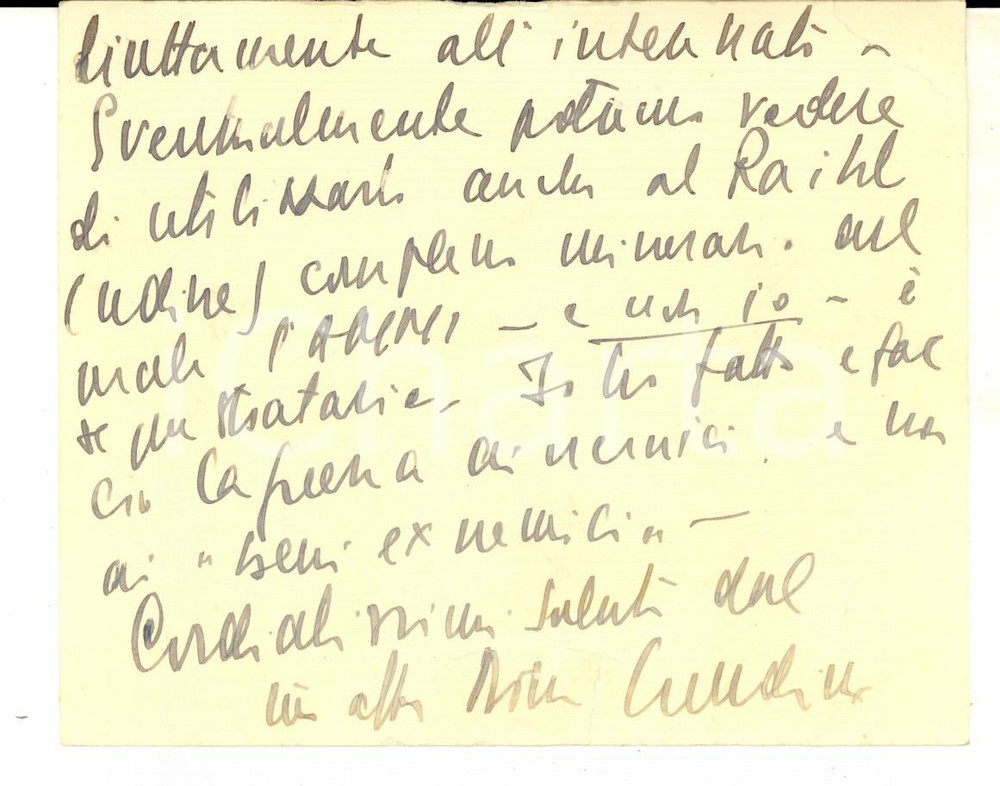 direttamente all'internati -
Eventualmente potremo vedere
di utilizzarlo anche al Raibl
(Udine) complesso minerario del
quale l'AMMI - e non io - è
la
Io ho fatto e faccio
la guerra ai nemici e non
ai "beni ex nemici" -
Cordialissimi saluti dal
Charta